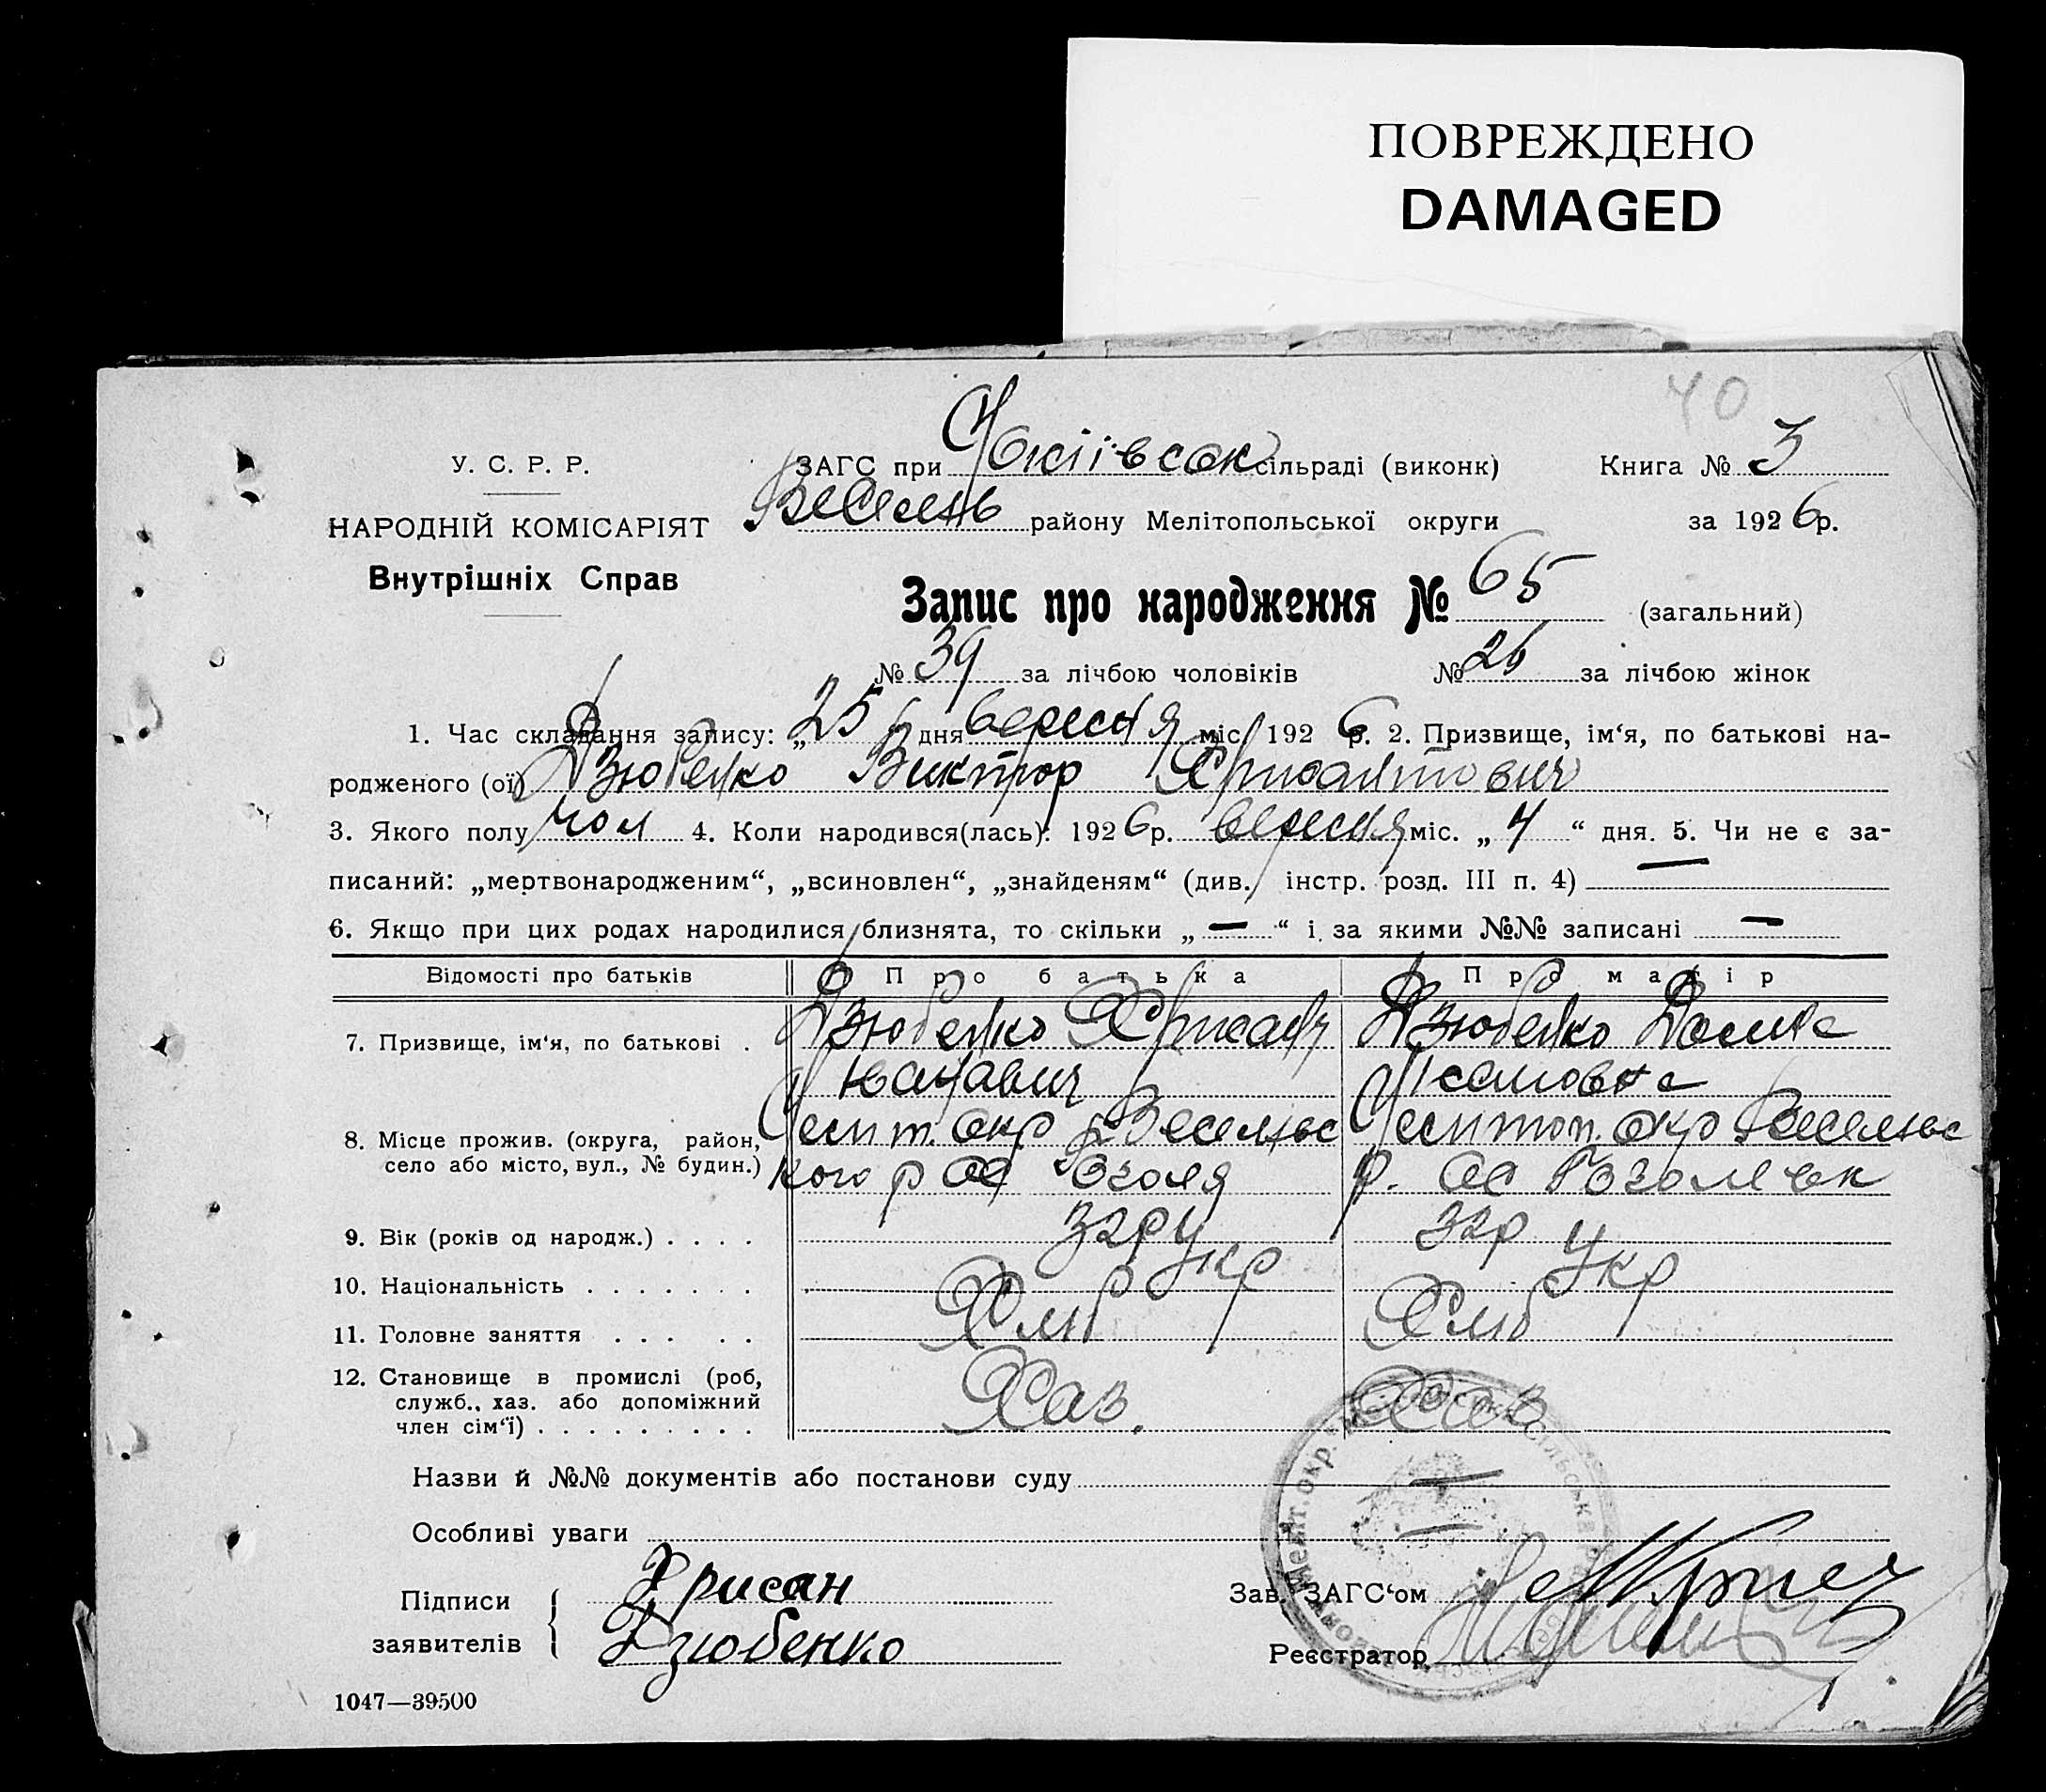 ПОВРЕЖДЕНО
DAMAGED
40
У. С. Р. Р.
НАРОДНІЙ КОМІСАРІЯТ
Внутрішніх Справ
ЗАГС при сільраді (виконк) Книга № 3
Веселів району Мелітопольської округи за 1926р.
Запис про народження № 65 (загальний)
№ 39 за лічбою чоловіків № 26 за лічбою жінок
1. Час складання запису: „25 дня вересня міс. 1926 р. 2. Призвище, ім‘я, по батькові на-
родженого (ої) Дзюбенко Виктор Хрисантович
3. Якого полу чол 4. Коли народився(лась): 1926р. вересня міс. „4“ дня. 5. Чи не є за-
писаний: „мертвонародженим“, „всиновлен“, „знайденям“ (див. інстр. розд. III п. 4) —
6. Якщо при цих родах народилися близнята, то скільки „—“ і за якими №№ записані —
Відомості про батьків Про батька Про матір
7. Призвище, ім‘я, по батькові . Дзюбенко Хрисант Дзюбенко
8. Місце прожив. (округа, район, Мелит. окр Весельс Мелитоп. окр Весельс
село або місто, вул., № будин.) кого р р.
9. Вік (років од народж.) . . . . 32 р 32р
10. Національність . . . . . . . Укр Укр
11. Головне заняття . . . . . Хліб Хліб
12. Становище в промислі (роб, Хаз. Хаз
служб., хаз. або допоміжний
член сім‘ї) . . . . . . . . .
Назви й №№ документів або постанови суду —
Особливі уваги —
Підписи Хрисан Зав. ЗАГС‘ом
заявителів Дзюбенко Реєстратор
1047—39500